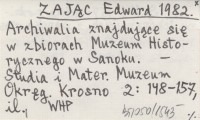 ZAJĄC Edward 1982.
Archiwalia znajdujące się
w zbiorach Muzeum Histo-
rycznego w Sanoku. –
Studia i Mater. Muzeum
Okręg. Krosno 2: 148-157,
il. WHP